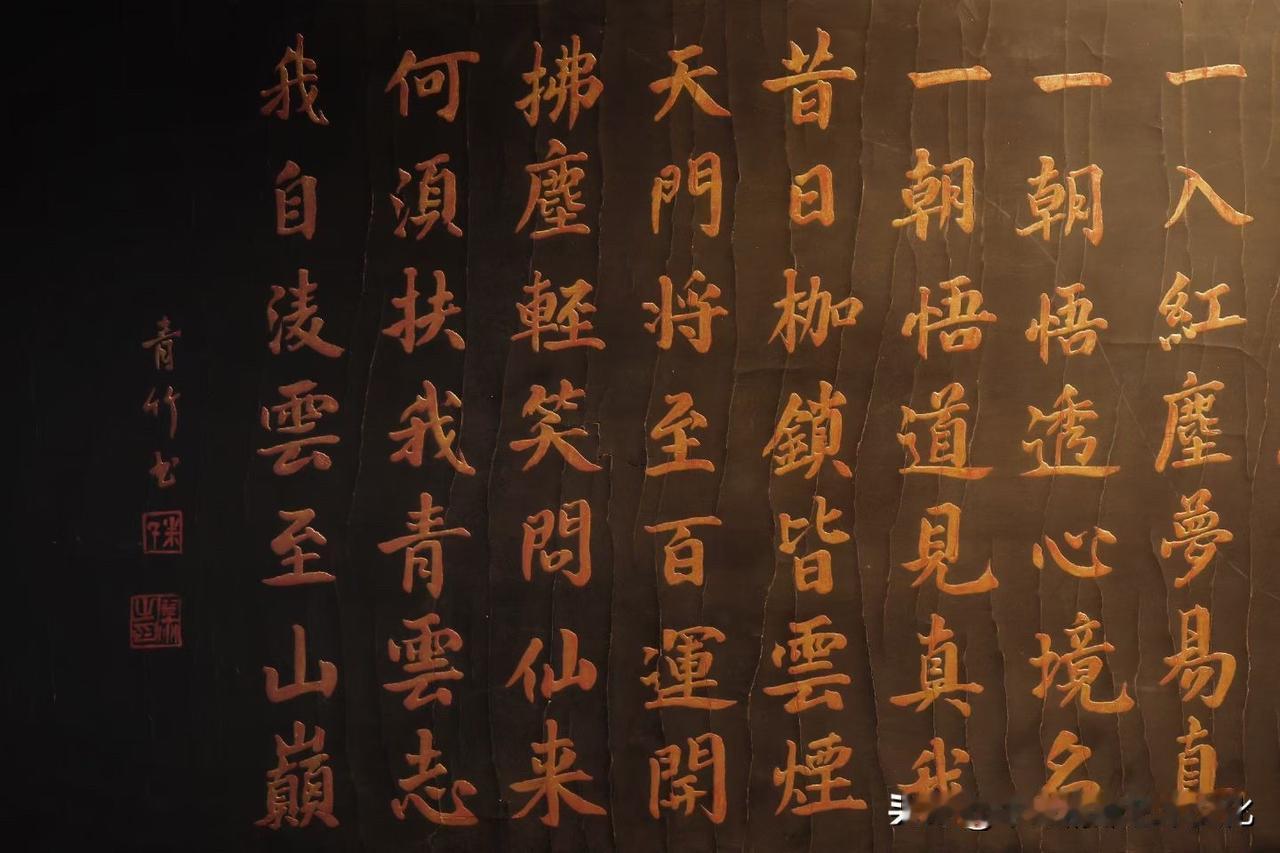 一入紅塵夢易真
一朝悟透心境名
一朝悟道見真我
昔日枷鎖皆雲煙
天門将至百運開
拂塵輕笑問仙来
何須扶我青雲志
我自淩雲至山巔
青竹书